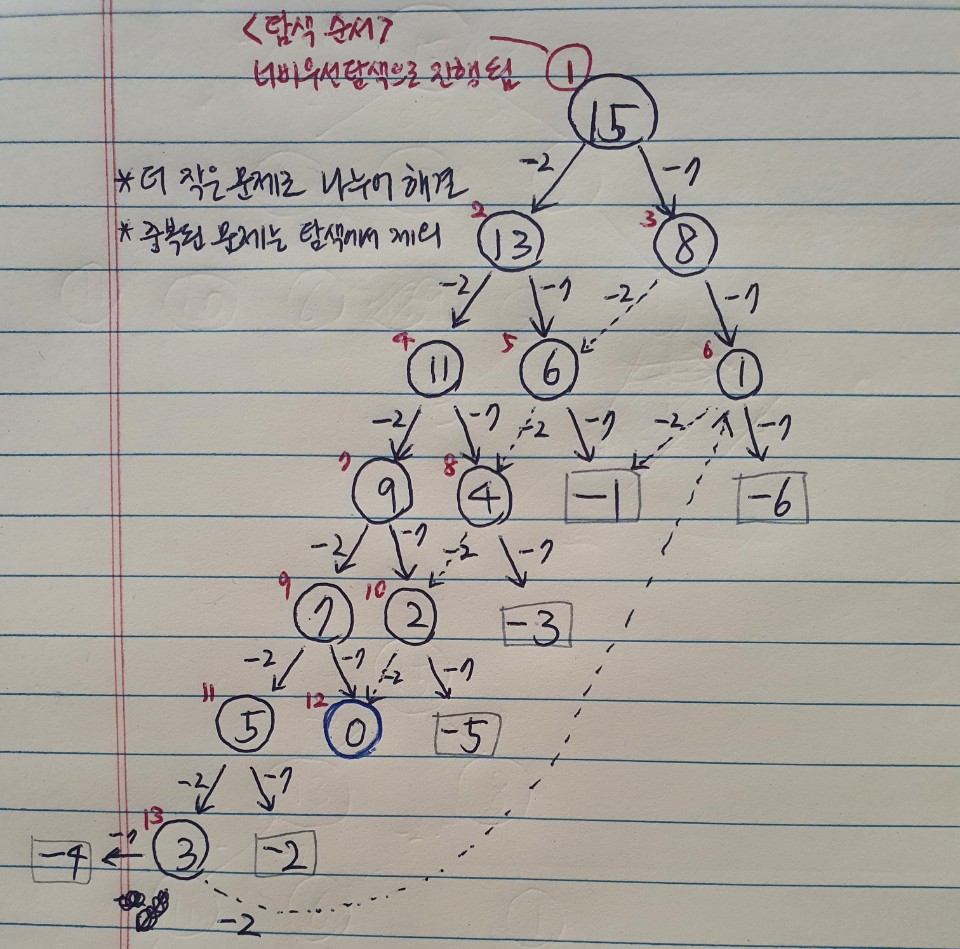 <탐색 순서>
너비우선탐색으로 진행됨 1
15
-2 -7
* 더 작은 문제로 나누어 해결
* 중복된 문제는 탐색에서 제외
2 13 3 8
-2 -7 -2 -7
4 11 5 6 6 1
-2 -7 -2 -7 -2 -7
7 9 8 4 -1 -6
-2 -7 -2 -7
9 7 10 2 -3
-2 -7 -2 -7
11 5 12 0 -5
-2 -7
-4 -7 13 3 -2
-2